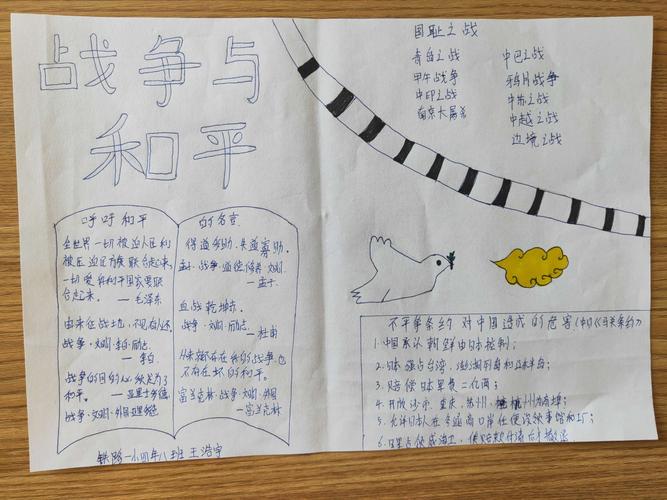 战争与
和平
国耻之战
青岛之战
甲午战争
中印之战
南京大屠杀
中巴之战
鸦片战争
中苏之战
中越之战
边境之战
呼吁和平
的名言
全世界一切被迫人民和
被压迫民族联合起来,
一切爱好和平国家要联
合起来。 —毛泽东
由来征战地,不见有人还。
战争·文明·李白·励志.
—李白
战争的目的必须是为了
和平。 —亚里士多德
战争·文明·外国·理智
得道多助,失道寡助。
孟子·战争·道德修养·文明.
—孟子
血战乾坤赤.
战争·文明·励志.
—杜甫
从来就不存在好的战争,也
不存在坏的和平。
富兰克林·战争·文明·外国
—富兰克林
不平等条约对中国造成的危害(中日《马关条约》)
1.中国承认朝鲜由日本控制;
2.日本强占台湾、澎湖列岛和辽东半岛;
3.赔偿日本军费二亿两;
4.开放沙市、重庆、苏州、杭州为商埠;
5.允许日本人在各通商口岸任便设领事馆和工厂;
铁路一小四年八班 王浩宇